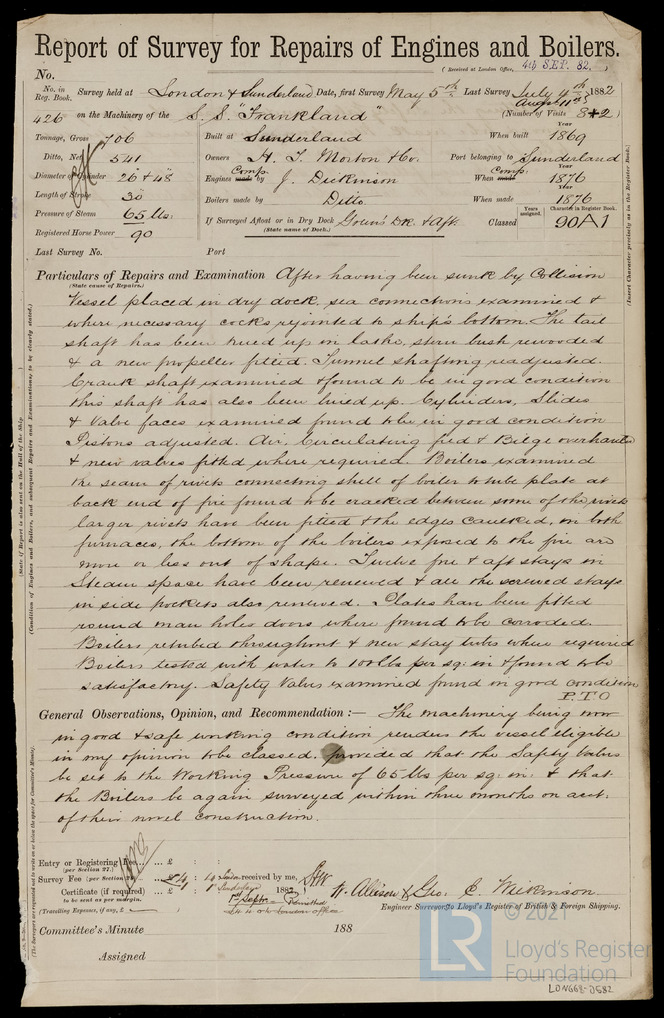 Report of Survey for Repairs of Engines and Boilers.
(Received at London Office, 4th SEP. 82.)
No.
No. in Reg. Book. Survey held at London & Sunderland Date, first Survey May 5th Last Survey July 4th 1882
August 11th
426 on the Machinery of the S.S. "Frankland" (Number of Visits 8+2)
Tonnage, Gross 706 Built at Sunderland When built Year 1869
Ditto, Net 541 Owners H. T. Morton & Co. Port belonging to Sunderland
Diameter of Cylinder 26 & 48 Engines made Comp. by J. Dickinson When made Comp. Year 1876
Length of Stroke 30 Boilers made by Ditto When made Year 1876
Pressure of Steam 65 lbs. If Surveyed Afloat or in Dry Dock Green's DK & Aft. Classed Years assigned. Character in Register Book. 90A1
(State name of Dock.)
Registered Horse Power 90
Last Survey No. Port
Particulars of Repairs and Examination After having been sunk by Collision
(State cause of Repairs.)
Vessel placed in dry dock, sea connections examined &
where necessary cocks rejointed to ship's bottom. The tail
shaft has been trued up in lathe, stern bush rewooded
& a new propeller fitted. Tunnel shafting readjusted.
Crank shaft examined & found to be in good condition
this shaft has also been lined up. Cylinders, Slides
& Valve faces examined found to be in good condition
Pistons adjusted. Air, Circulating feed & Bilge overhauled
& new valves fitted where required. Boilers examined
the seam of rivets connecting shell of boiler to tube plate at
back end of fire found to be cracked between some of the rivets
larger rivets have been fitted & the edges caulked, on both
furnaces, the bottom of the boilers exposed to the fire are
more or less out of shape. Twelve fore & aft stays in
Steam space have been renewed & all the screwed stays
in side pockets also renewed. Plates have been fitted
round man holes doors where found to be corroded.
Boilers retubed throughout & new stay tubes where required
Boilers tested with water to 100 lbs per sq: in & found to be
satisfactory. Safety Valves examined found in good condition
P.T.O
General Observations, Opinion, and Recommendation:— The machinery being now
in good & safe working condition renders the vessel eligible
in my opinion to be classed. provided that the Safety Valves
be set to the Working Pressure of 65 lbs per sq: in: & that
the Boilers be again surveyed within three months on acct.
of their novel construction.
Entry or Registering Fee ... £ : :
(per Section 27.)
Survey Fee (per Section ... £ 4 : 4 received by me,
Certificate (if required) ... £ 1 : 1 Sunderland 1882,
to be sent as per margin. 1st Septr
(Travelling Expenses, if any, £
W. Allison & Geo. C. Wilkinson
Engineer Surveyors to Lloyd's Register of British & Foreign Shipping.
Committee's Minute 188
Assigned
(Insert Character precisely as in the Register Book.)
(State if Report is also sent on the Hull of the Ship.
(Condition of Engines and Boilers, and subsequent Repairs and Examinations, to be clearly stated.)
(The Surveyors are requested not to write on or below the space for Committee's Minute).
© 2021
LR
Lloyd's Register
Foundation
LDN668-0582